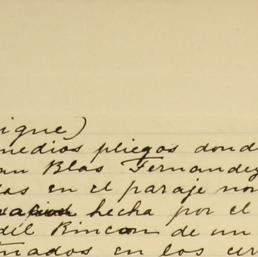 igue)
medios pliegos dond
an Blas Fernandez
das en el paraje no
hecha por el
del Rincon de un
mados en los cer